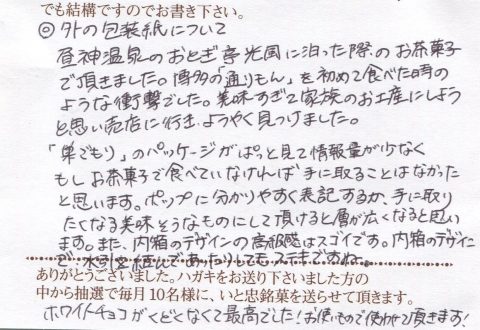 でも結構ですのでお書き下さい。
◎外の包装紙について
昼神温泉のおとぎ亭光風に泊った際のお茶菓子
で頂きました。博多の「通りもん」を初めて食べた時の
ような衝撃でした。美味すぎて家族のお土産にしよう
と思い売店に行き、ようやく見つけました。
「巣ごもり」のパッケージがぱっと見て情報量が少なく
もしお茶菓子で食べていなければ手に取ることはなかった
と思います。ポップに分かりやすく表記するか、手に取り
たくなる美味そうなものにして頂けると層が広くなると思い
ます。また、内箱のデザインの高級感はスゴイです。内箱のデザイン
で、水引を結んであったりしてもステキですね。
ありがとうございました。ハガキをお送り下さいました方の
中から抽選で毎月10名様に、いと忠銘菓を送らせて頂きます。
ホワイトチョコがくどくなくて最高でした!お使いもので使わせて頂きます!